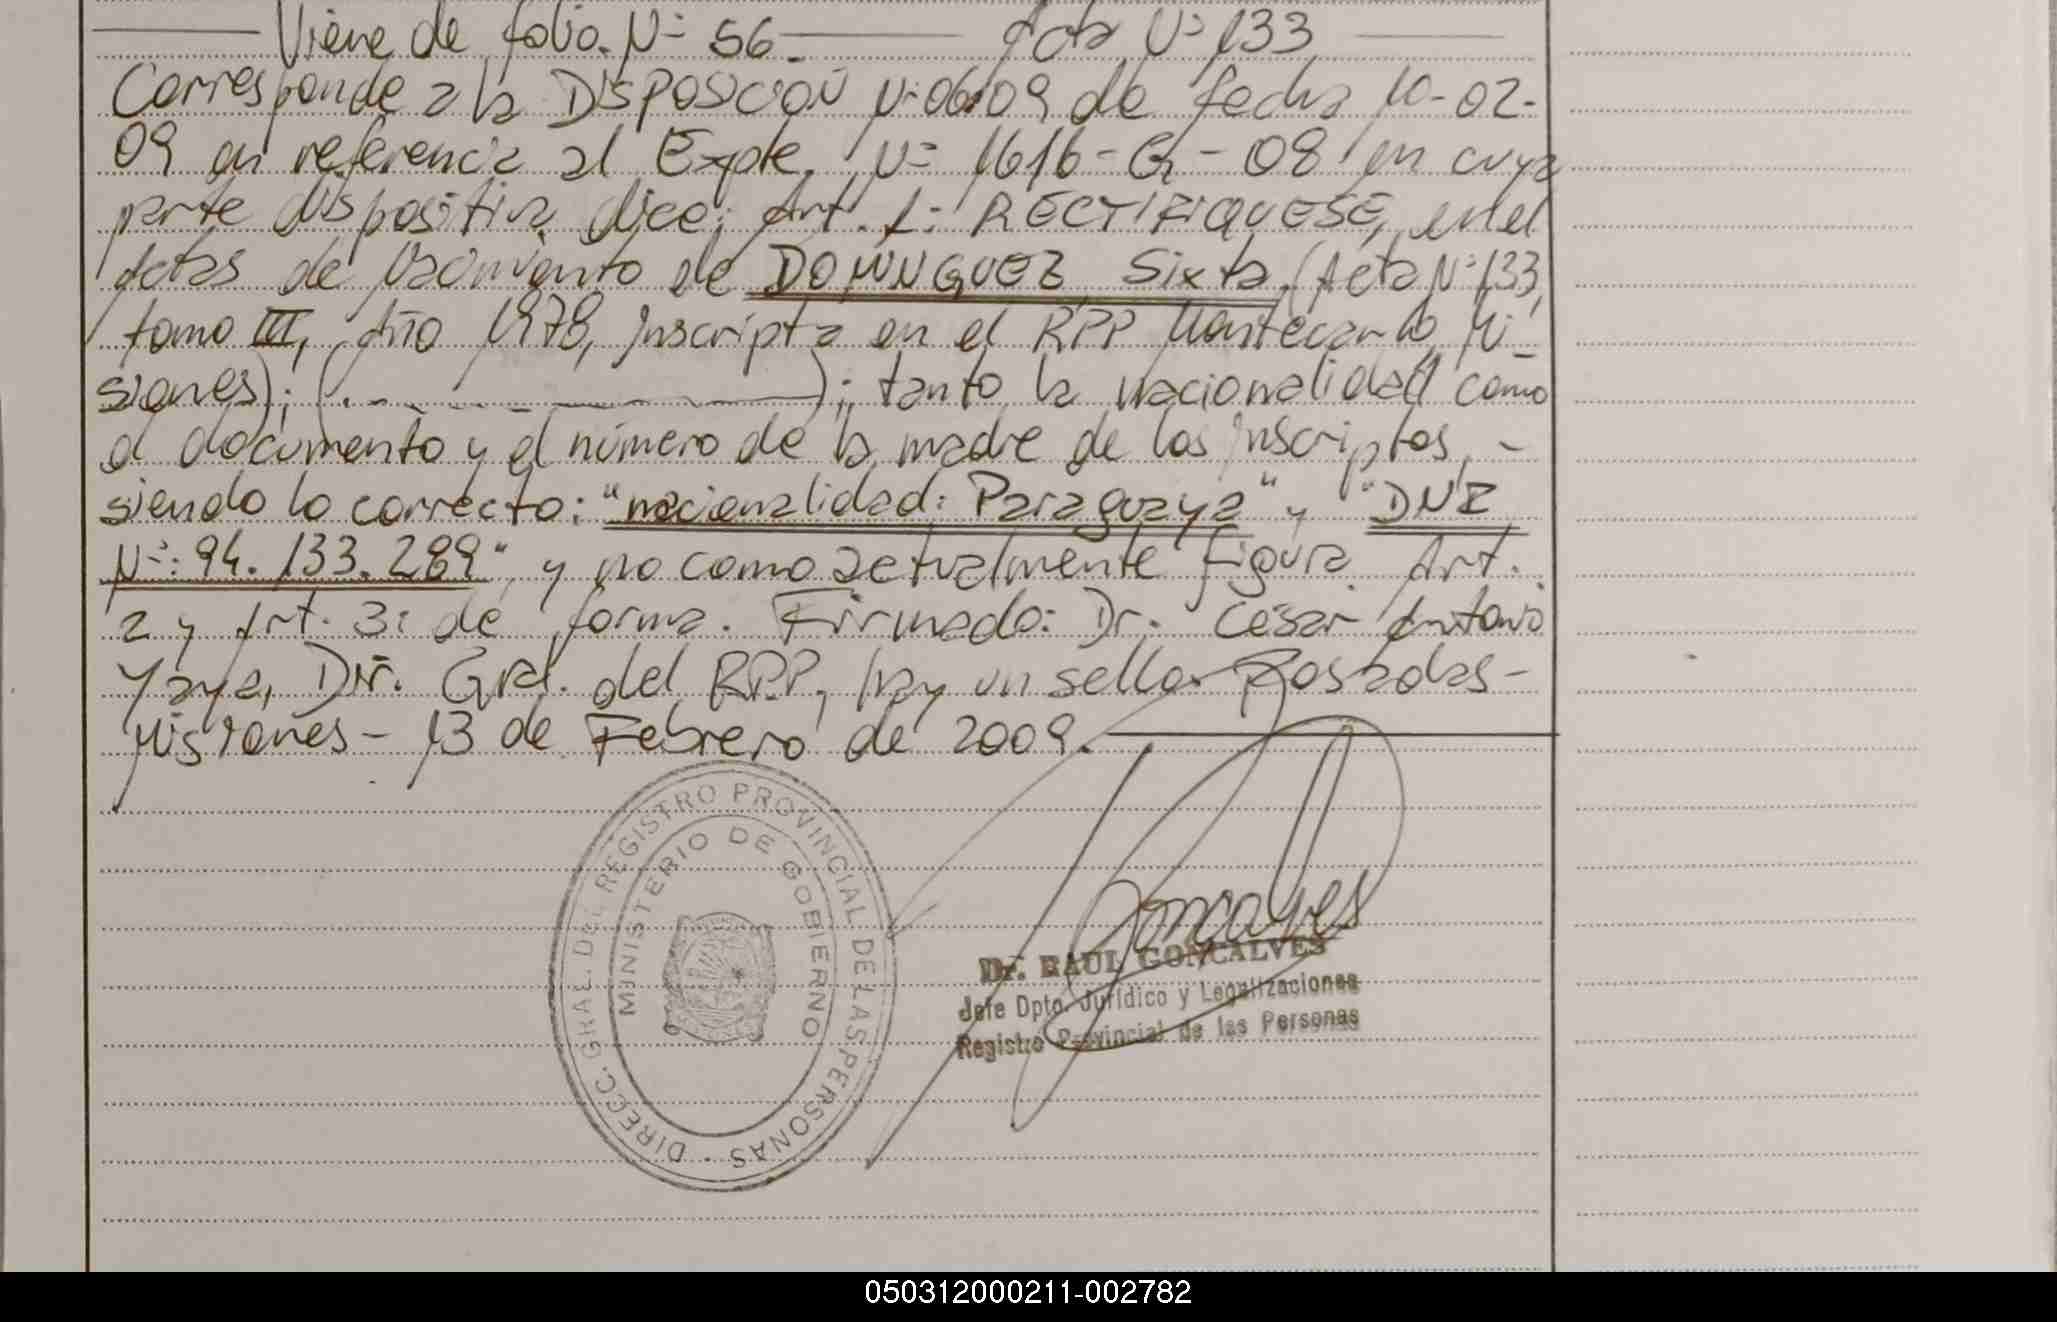 Viene de folio. Nº 56. Acta Nº 133
Corresponde a la DISPOSICION Nº 06/09 de fecha 10-02-
09 en referencia al Expte. Nº 1616-G-08 en cuya
parte dispositiva dice: Art. 1: RECTIFIQUESE, en el
Actas de Nacimiento de DOMINGUEZ Sixta (Acta Nº 133,
tomo III, Año 1978, Inscripta en el RPP Montecarlo, Mi_
siones); (. ); tanto la nacionalidad como
el documento y el número de la madre de los inscriptos, -
siendo lo correcto: "nacionalidad: Paraguaya" y "DNI
Nº: 94.133.289", y no como actualmente figura. Art.
2 y Art. 3: de forma. Firmado: Dr. César Antonio
Yaya, Dir. Gral. del RPP, hay un sello. Posadas-
Misiones - 13 de Febrero de 2009.
DIRECC. GRAL. DEL REGISTRO PROVINCIAL DE LAS PERSONAS
MINISTERIO DE GOBIERNO
Goncalves
Dr. RAUL GONCALVES
Jefe Dpto. Jurídico y Legalizaciones
Registro Provincial de las Personas
050312000211-002782